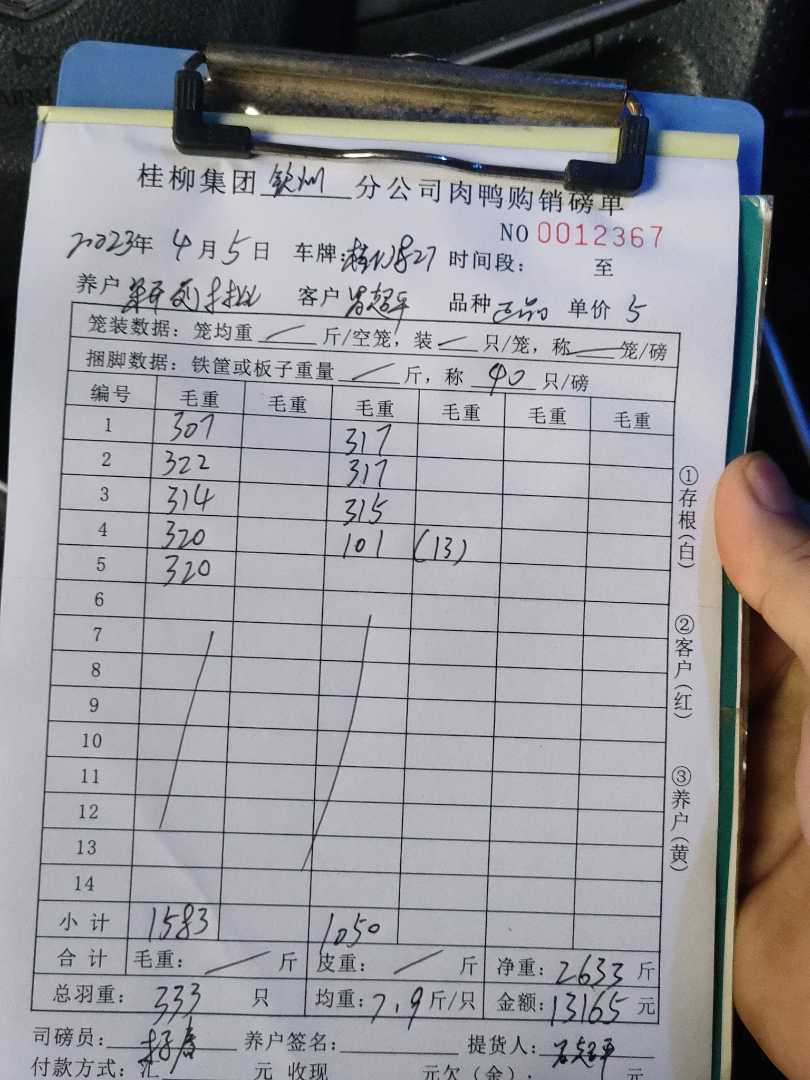 桂柳集团 钦州 分公司肉鸭购销磅单
NO 0012367
2023年 4月5日 车牌: 时间段: 至
养户 客户 品种 正品 单价 5
笼装数据: 笼均重 / 斤/空笼, 装 / 只/笼, 称 / 笼/磅
捆脚数据: 铁筐或板子重量 / 斤, 称 40 只/磅
编号 毛重 毛重 毛重 毛重 毛重 毛重
1 307 317
2 322 317
3 314 315
4 320 101 (13)
5 320
6
7
8
9
10
11
12
13
14
小计 1583 1050
合计 毛重: / 斤 皮重: / 斤 净重: 2633 斤
总羽重: 333 只 均重: 7.9 斤/只 金额: 13165 元
司磅员: 养户签名: 提货人:
付款方式: 汇 元 收现 元欠(金): 元
①存根(白)
②客户(红)
③养户(黄)